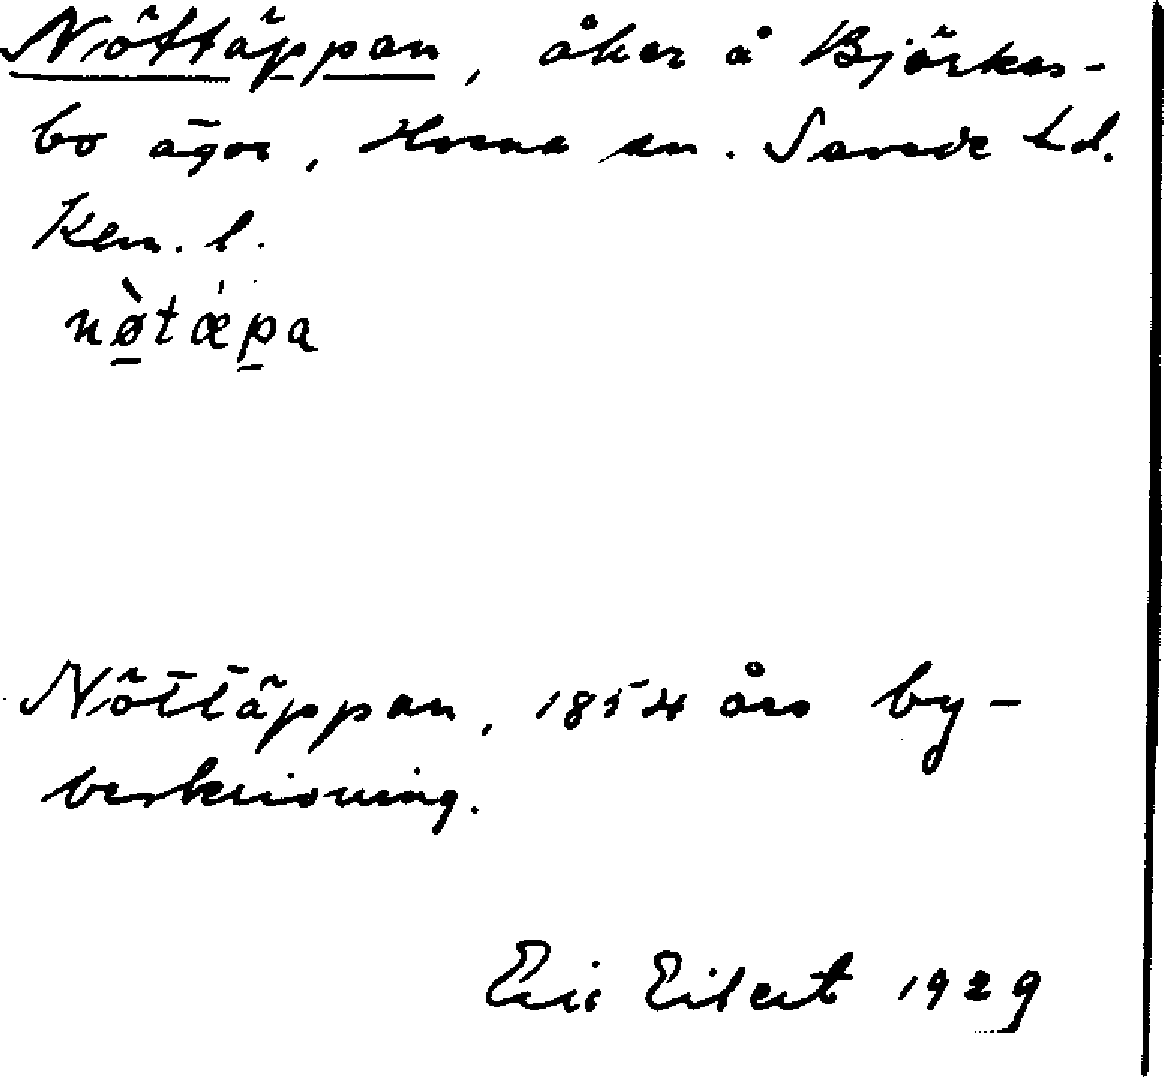 Nöttäppan, åker å Björkes-
bo ägor, Horns sn. Sunds hd.
Ksm. l.
nø̀tǽpa
Nöttäppan, 1854 års by-
beskrivning.
Eric Eilert 1929